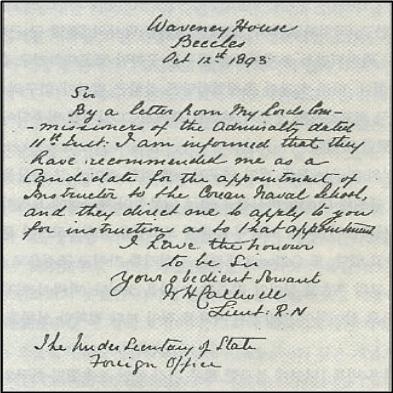 Waveney House
Beccles
Oct 12th 1893
Sir
By a letter from My Lords Com-
-missioners of the Admiralty dated
11th Inst. I am informed that they
have recommended me as a
Candidate for the appointment of
Instructor to the Corean Naval School,
and they direct me to apply to you
for instructions as to that appointment
I have the honour
to be Sir
Your obedient Servant
W H Callwell
Lieut: R.N
The Under Secretary of State
Foreign Office